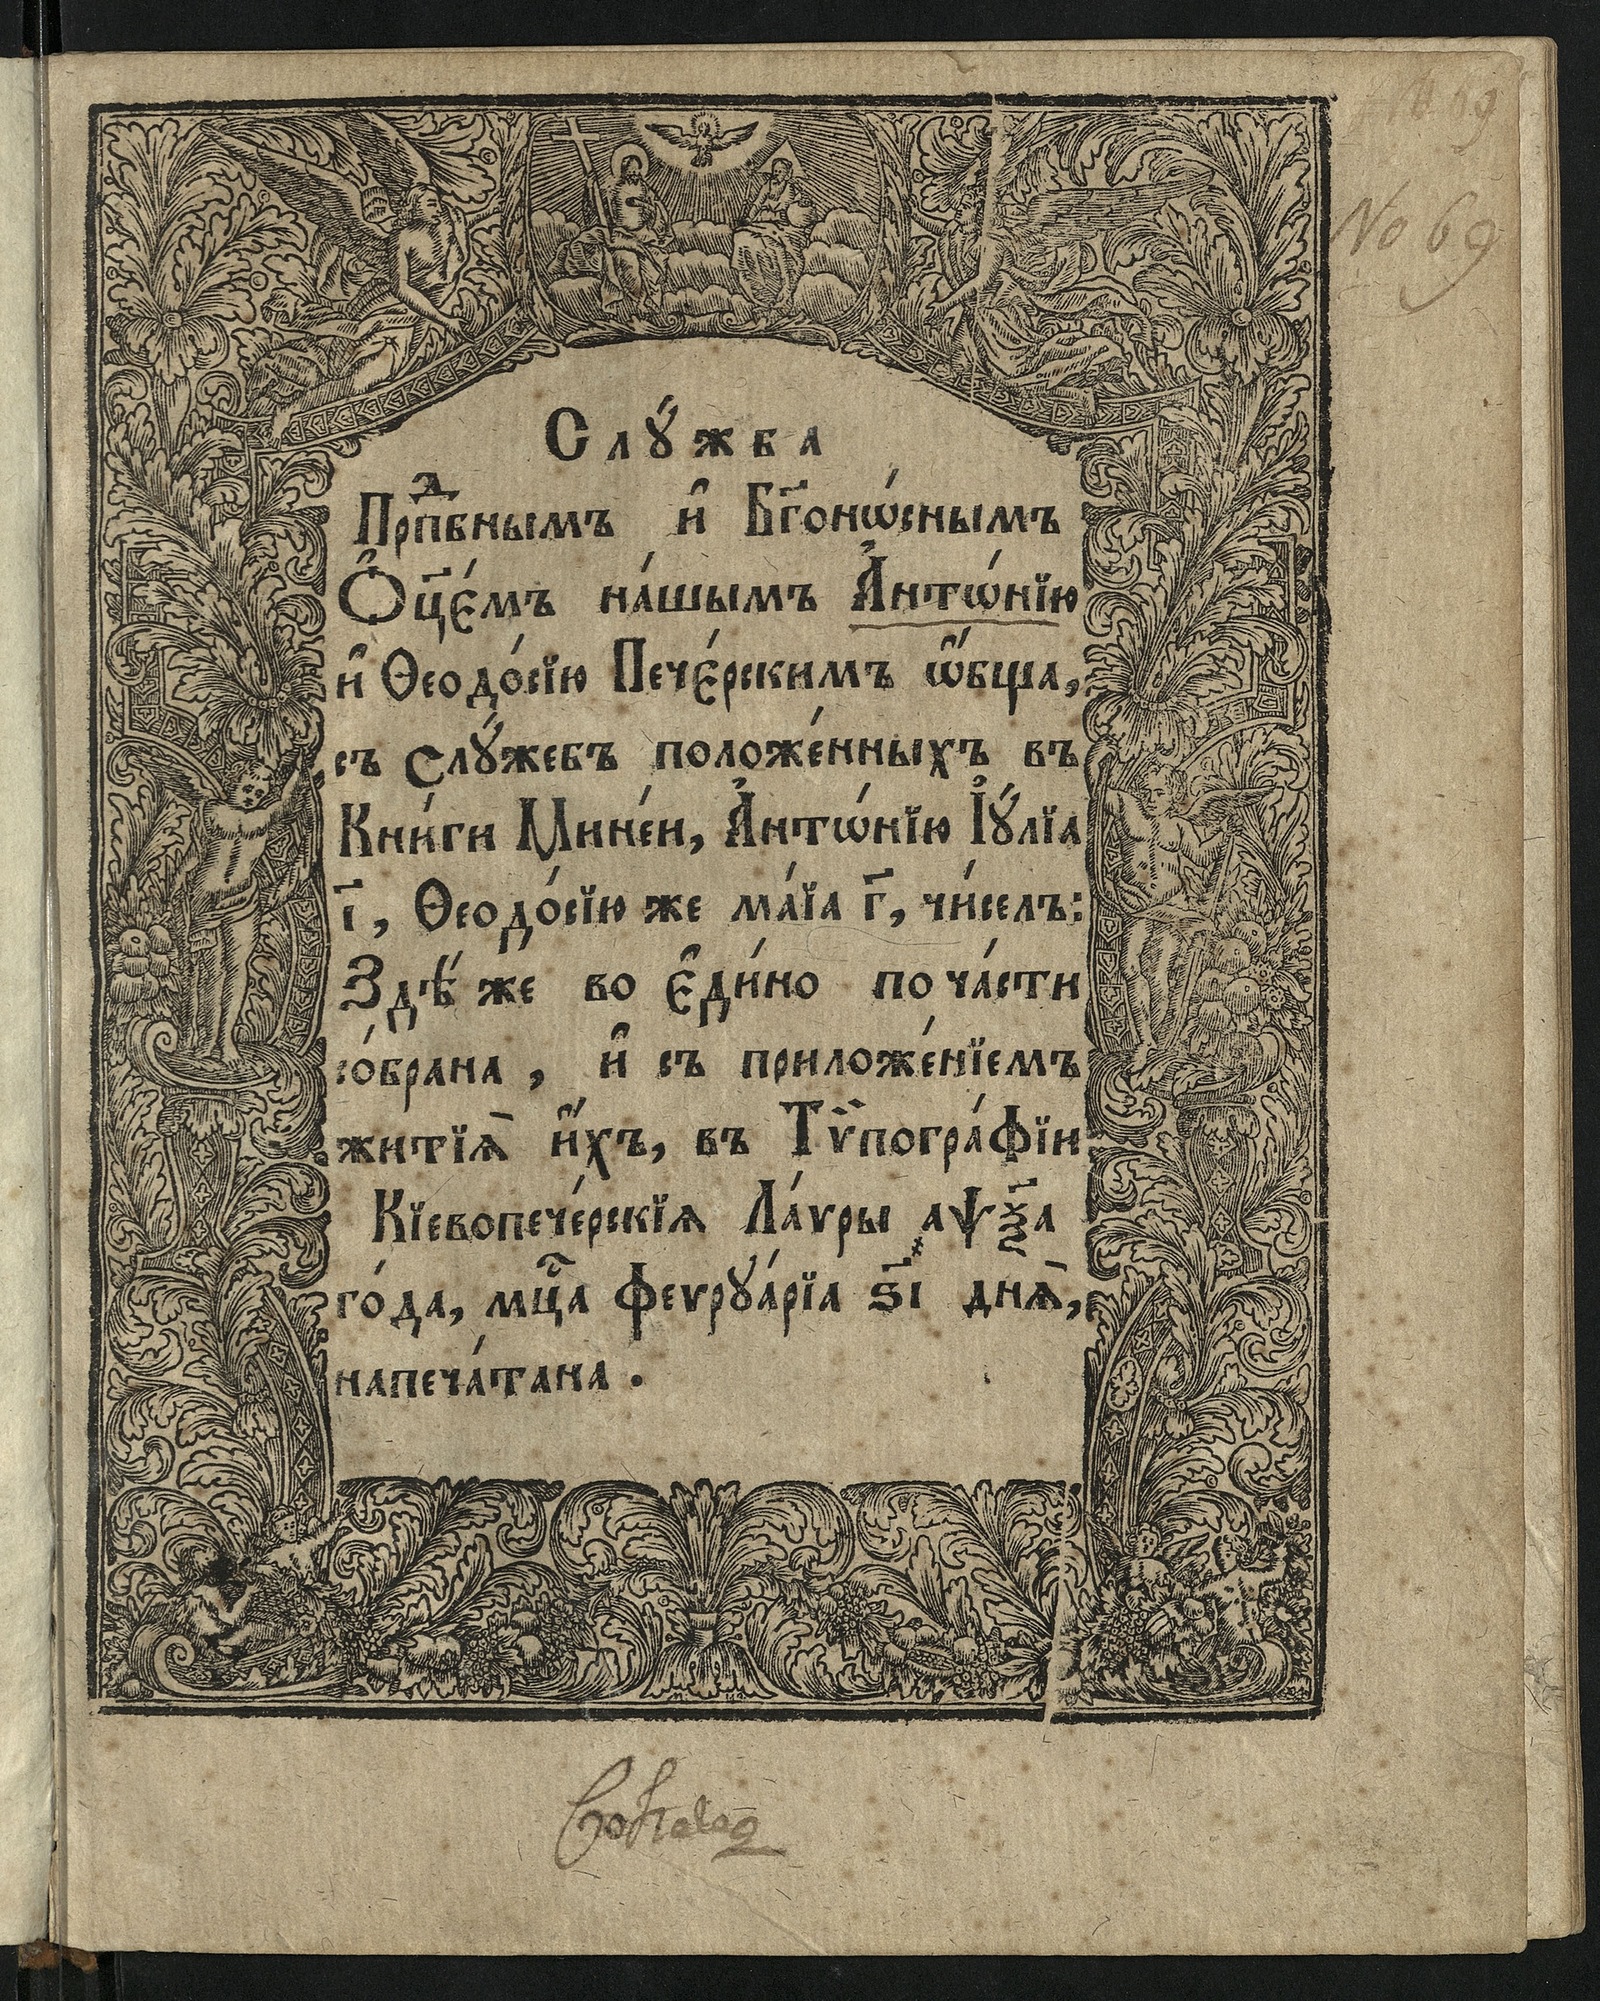 № 69
No 69
Слꙋ́жба
Прпⷣбнымъ и҆ Бг҃онѡ́снымъ
Ѻ҆ц҃є́мъ на́шымъ А҆нтѡ́нїю
и҆ Ѳеодо́сїю Пече́рскимъ ѡ҆́бща,
съ Слꙋ́жебъ положе́нныхъ въ
Кни́ги Мине́и, А҆нтѡ́нїю І҆ꙋ́лїа
і҃, Ѳеодо́сїю же ма́їа г҃, чи́селъ:
Здѣ́ же во є҆ди́но по ча́сти
со́брана, и҆ съ приложе́нїемъ
житїѧ̀ и҆́хъ, въ Тѵ̈погра́фїи
Кїевопече́рскїѧ Ла́ѵры ҂аѱѯ҃а
го́да, мцⷭ҇а феѵрꙋа́рїа ѕ҃і днѧ̀,
напеча́тана.